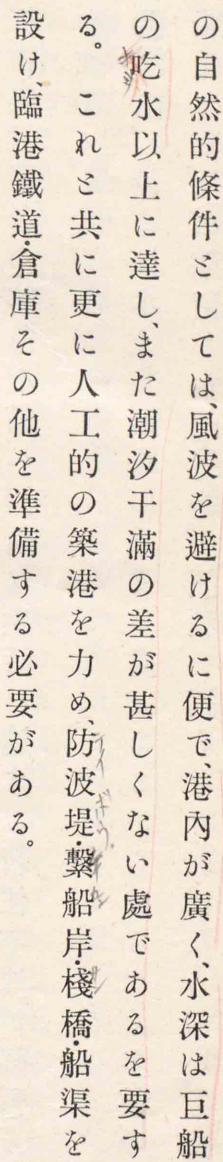 の自然的條件としては、風波を避けるに便で、港內が廣く、水深は巨船
の吃水以上に達し、また潮汐干滿の差が甚しくない處であるを要す
る。これと共に更に人工的の築港を力め、防波堤・繫船岸・棧橋・船渠を
設け、臨港鐵道・倉庫その他を準備する必要がある。